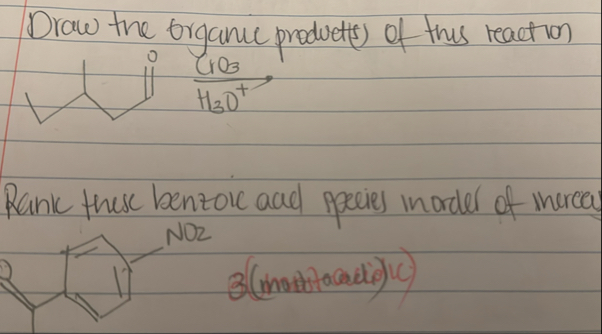 Draw the organic product(s) of this reaction
O
CrO3
H3O+
Rank these benzoic acid species in order of increas
NO2
O
3